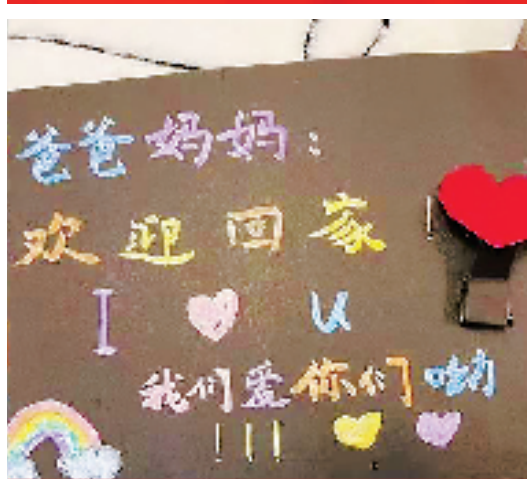 爸爸妈妈:
欢迎回家!
I ♥ U
我们爱你们哟
!!!